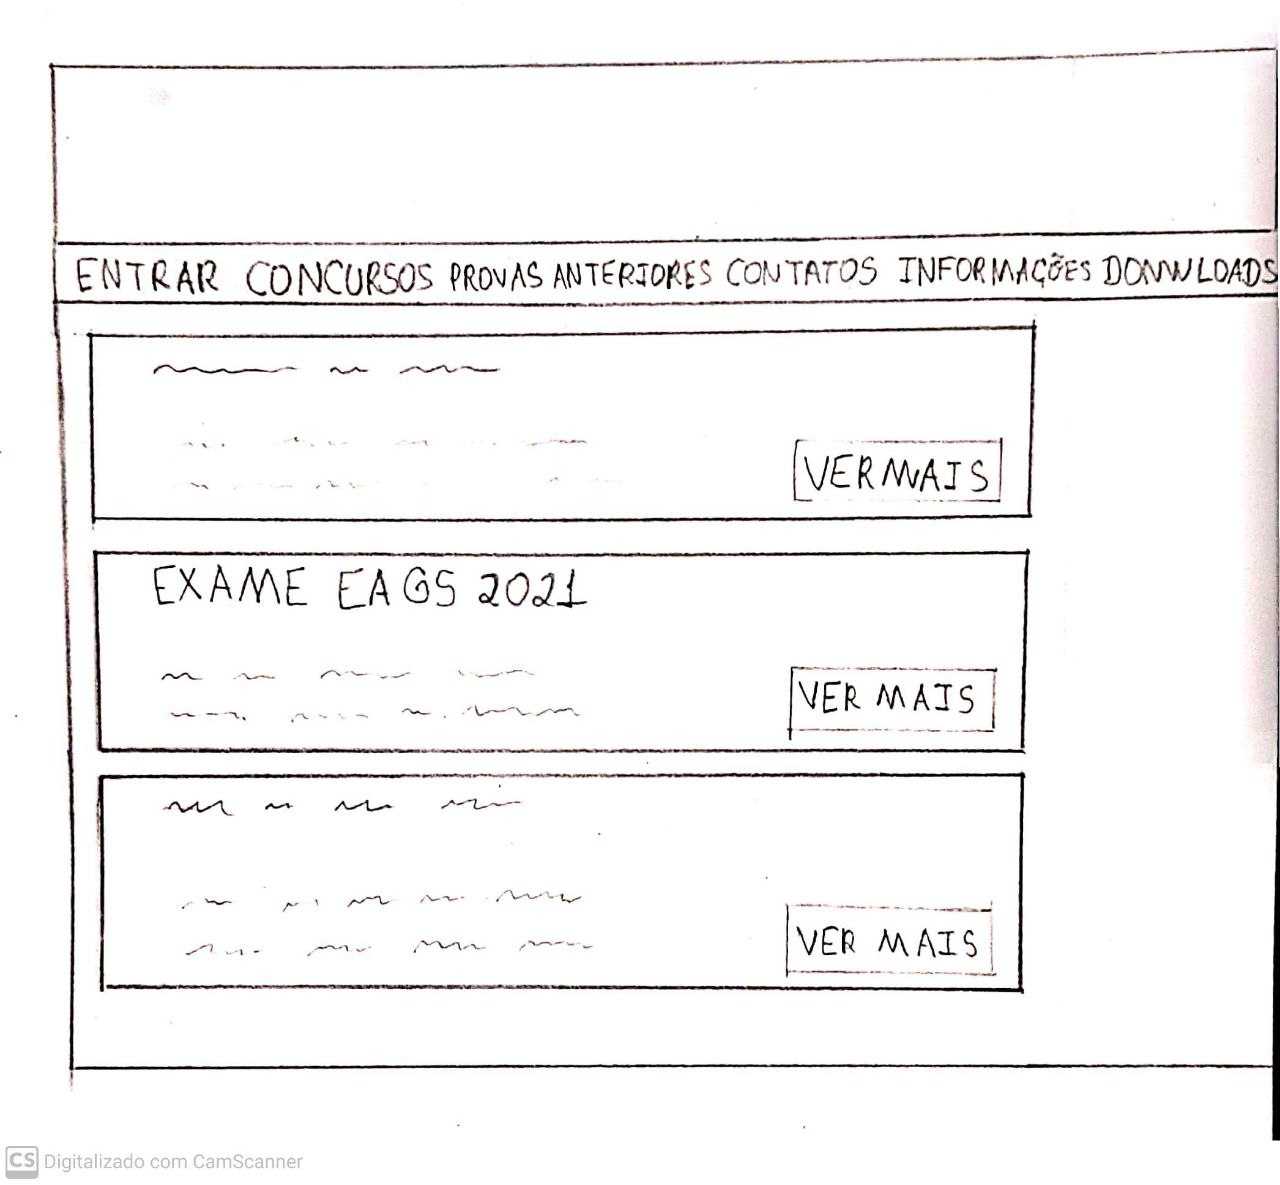 ENTRAR CONCURSOS PROVAS ANTERIORES CONTATOS INFORMAÇÕES DONWLOADS
VER MAIS
EXAME EAGS 2021
VER MAIS
VER MAIS
CS Digitalizado com CamScanner